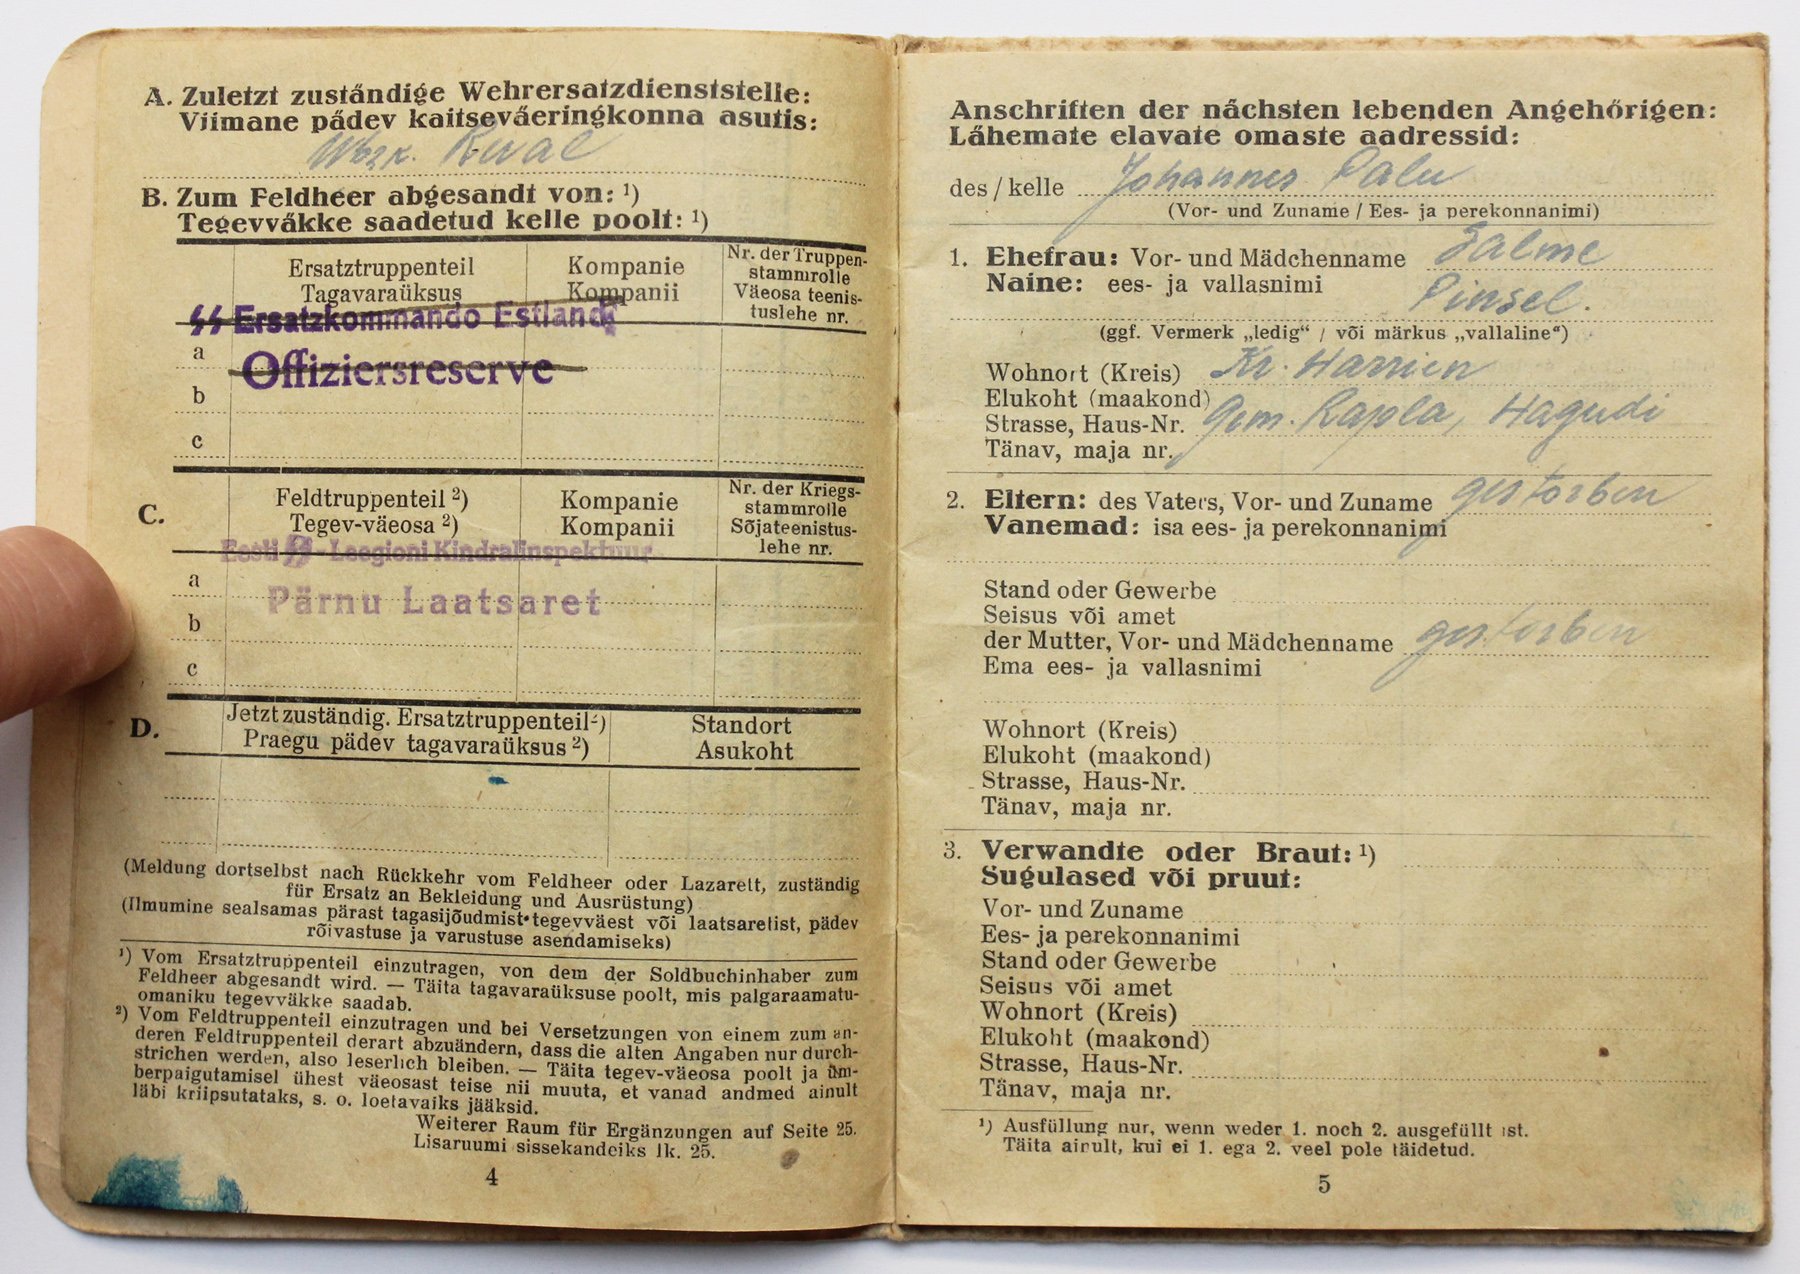 A. Zuletzt zuständige Wehrersatzdienststelle:
Viimane pädev kaitseväeringkonna asutis:
Wbzk. Reval
B. Zum Feldheer abgesandt von: ¹)
Tegevväkke saadetud kelle poolt: ¹)
Ersatztruppenteil
Tagavaraüksus
Kompanie
Kompanii
Nr. der Truppen-
stammrolle
Väeosa teenis-
tuslehe nr.
SS Ersatzkommando Estland
a
Offiziersreserve
b
c
C.
Feldtruppenteil ²)
Tegev-väeosa ²)
Kompanie
Kompanii
Nr. der Kriegs-
stammrolle
Sõjateenistus-
lehe nr.
Eesti SS-Leegioni Kindralinspektuur
a
Pärnu Laatsaret
b
c
D.
Jetzt zuständig. Ersatztruppenteil ²)
Praegu pädev tagavaraüksus ²)
Standort
Asukoht
(Meldung dortselbst nach Rückkehr vom Feldheer oder Lazarett, zuständig
für Ersatz an Bekleidung und Ausrüstung)
(Ilmumine sealsamas pärast tagasijõudmist tegevväest või laatsaretist, pädev
rõivastuse ja varustuse asendamiseks)
¹) Vom Ersatztruppenteil einzutragen, von dem der Soldbuchinhaber zum
Feldheer abgesandt wird. — Täita tagavaraüksuse poolt, mis palgaraamatu-
omaniku tegevväkke saadab.
²) Vom Feldtruppenteil einzutragen und bei Versetzungen von einem zum an-
deren Feldtruppenteil derart abzuändern, dass die alten Angaben nur durch-
strichen werden, also leserlich bleiben. — Täita tegev-väeosa poolt ja üm-
berpaigutamisel ühest väeosast teise nii muuta, et vanad andmed ainult
läbi kriipsutataks, s. o. loetavaiks jääksid.
Weiterer Raum für Ergänzungen auf Seite 25.
Lisaruumi sissekandeiks lk. 25.
4
Anschriften der nächsten lebenden Angehörigen:
Lähemate elavate omaste aadressid:
des / kelle Johannes Palu
(Vor- und Zuname / Ees- ja perekonnanimi)
1. Ehefrau: Vor- und Mädchenname Salme
Naine: ees- ja vallasnimi Pinsel.
(ggf. Vermerk „ledig“ / või märkus „vallaline“)
Wohnort (Kreis) Kr. Harrien
Elukoht (maakond)
Strasse, Haus-Nr. Gem. Rapla, Hagudi
Tänav, maja nr.
2. Eltern: des Vaters, Vor- und Zuname gestorben
Vanemad: isa ees- ja perekonnanimi
Stand oder Gewerbe
Seisus või amet
der Mutter, Vor- und Mädchenname gestorben
Ema ees- ja vallasnimi
Wohnort (Kreis)
Elukoht (maakond)
Strasse, Haus-Nr.
Tänav, maja nr.
3. Verwandte oder Braut: ¹)
Sugulased või pruut:
Vor- und Zuname
Ees- ja perekonnanimi
Stand oder Gewerbe
Seisus või amet
Wohnort (Kreis)
Elukoht (maakond)
Strasse, Haus-Nr.
Tänav, maja nr.
¹) Ausfüllung nur, wenn weder 1. noch 2. ausgefüllt ist.
Täita ainult, kui ei 1. ega 2. veel pole täidetud.
5